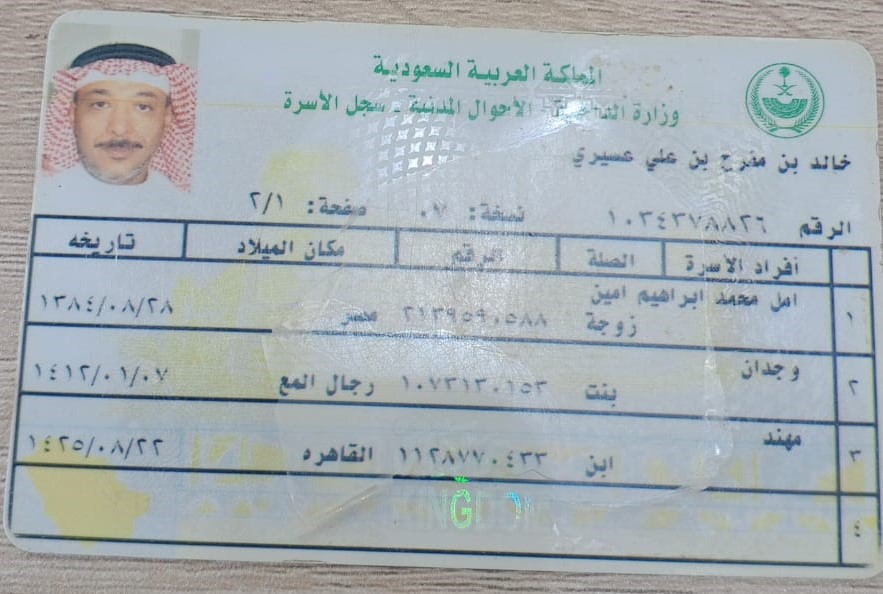 المملكة العربية السعودية
وزارة الداخلية - الأحوال المدنية - سجل الأسرة
خالد بن مفرح بن علي عسيري
الرقم ١٠٣٤٣٧٨٨٢٦ نسخة: ٠٧ صفحة: ٢/١
أفراد الأسرة الصلة الرقم مكان الميلاد تاريخه
١ امل محمد ابراهيم امين زوجة ٢١٣٩٥٩٠٥٨٨ مصر ١٣٨٤/٠٨/٢٨
٢ وجدان بنت ١٠٧٣١٣٠١٥٣ رجال المع ١٤١٢/٠١/٠٧
٣ مهند ابن ١١٢٨٧٧٠٤٣٣ القاهره ١٤٢٥/٠٨/٢٢
KINGDOM
٤